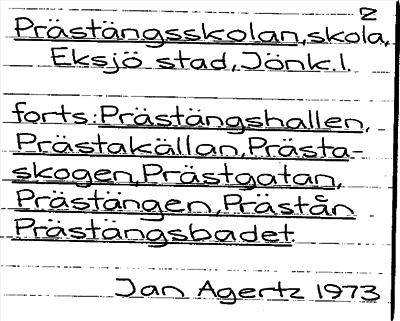 2
Prästängsskolan, skola,
Eksjö stad, Jönk.l.
forts: Prästängshallen,
Prästakällan, Prästa-
skogen, Prästgatan,
Prästängen, Prästån
Prästängsbadet
Jan Agertz 1973